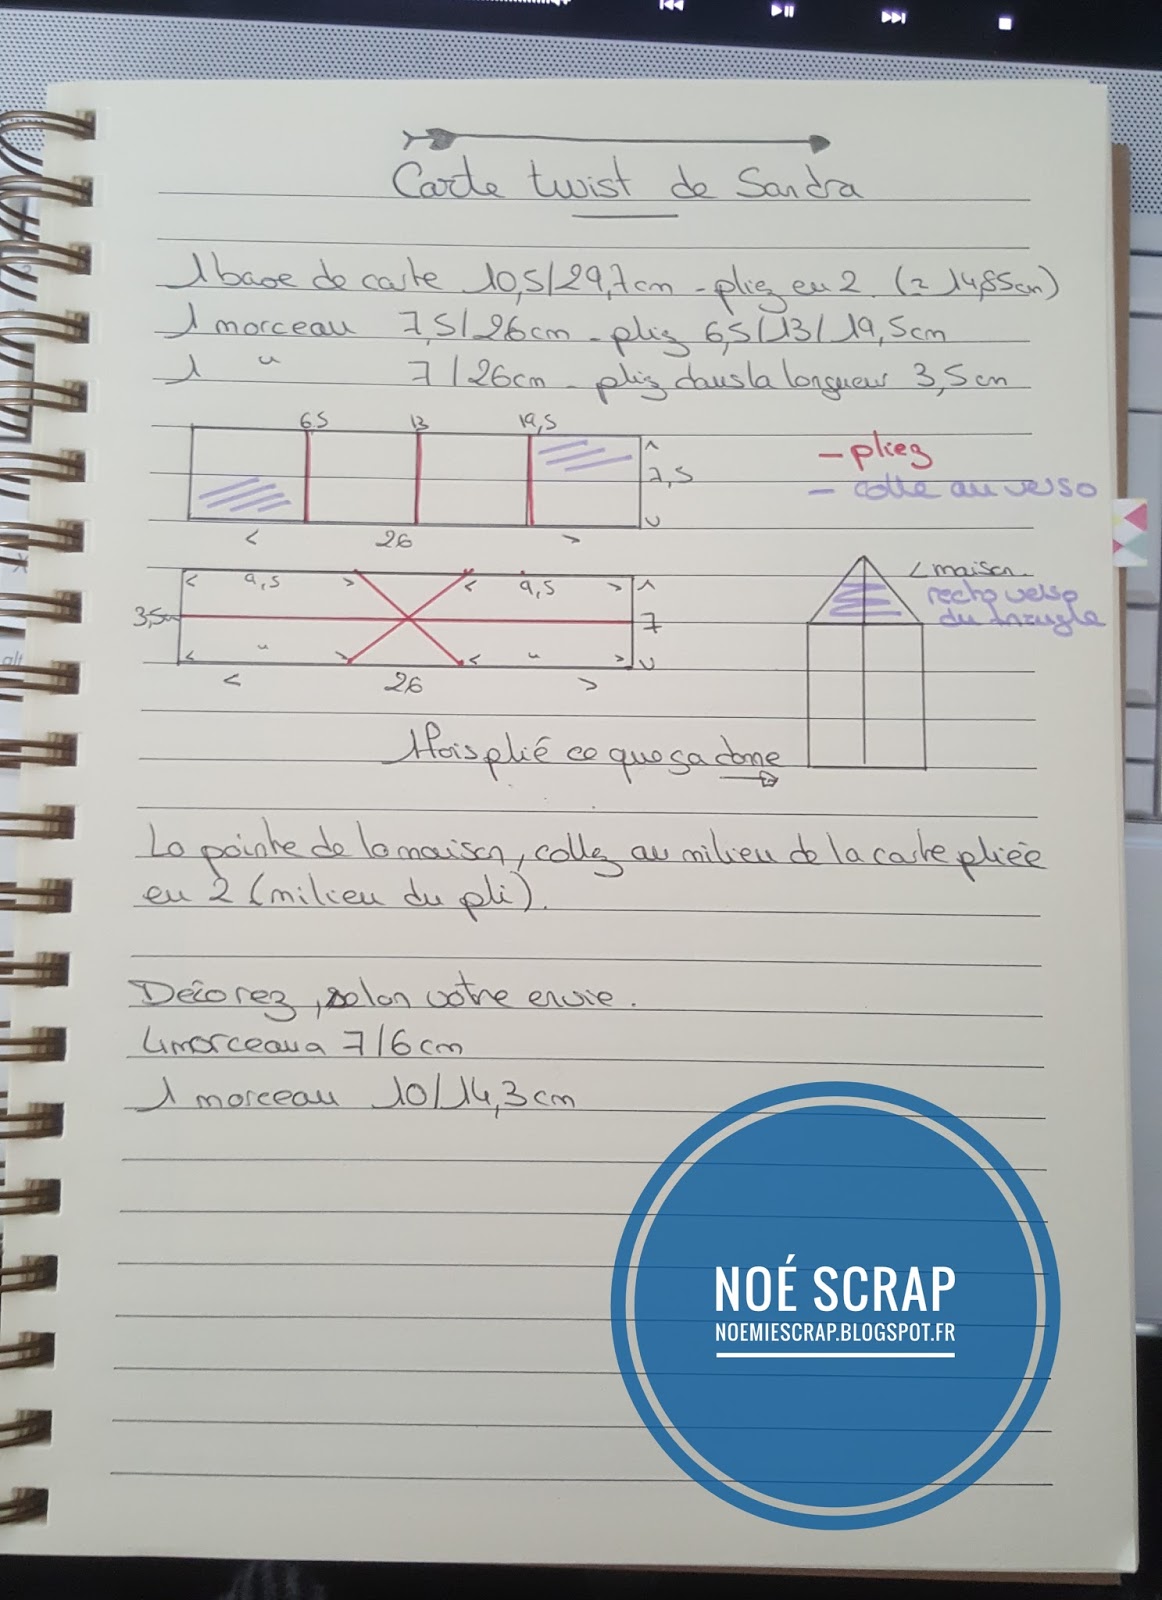 Carte twist de Sandra
1 base de carte 10,5/29,7cm - pliez en 2 (= 14,85cm)
1 morceau 7,5/26cm - pliez 6,5/13/19,5cm
1 " 7/26cm - pliez dans la longueur 3,5cm
6,5 13 19,5
7,5
- pliez
- colle au verso
< 26 >
< 9,5 > < 9,5 >
3,5cm
7
< " > < " >
< 26 >
maison
recto verso
du triangle
1 fois plié ce que ça donne
La pointe de la maison, collez au milieu de la carte pliée
en 2 (milieu du pli).
Décorez, selon votre envie.
4 morceaux 7/6cm
1 morceau 10/14,3cm
NOÉ SCRAP
NOEMIESCRAP.BLOGSPOT.FR